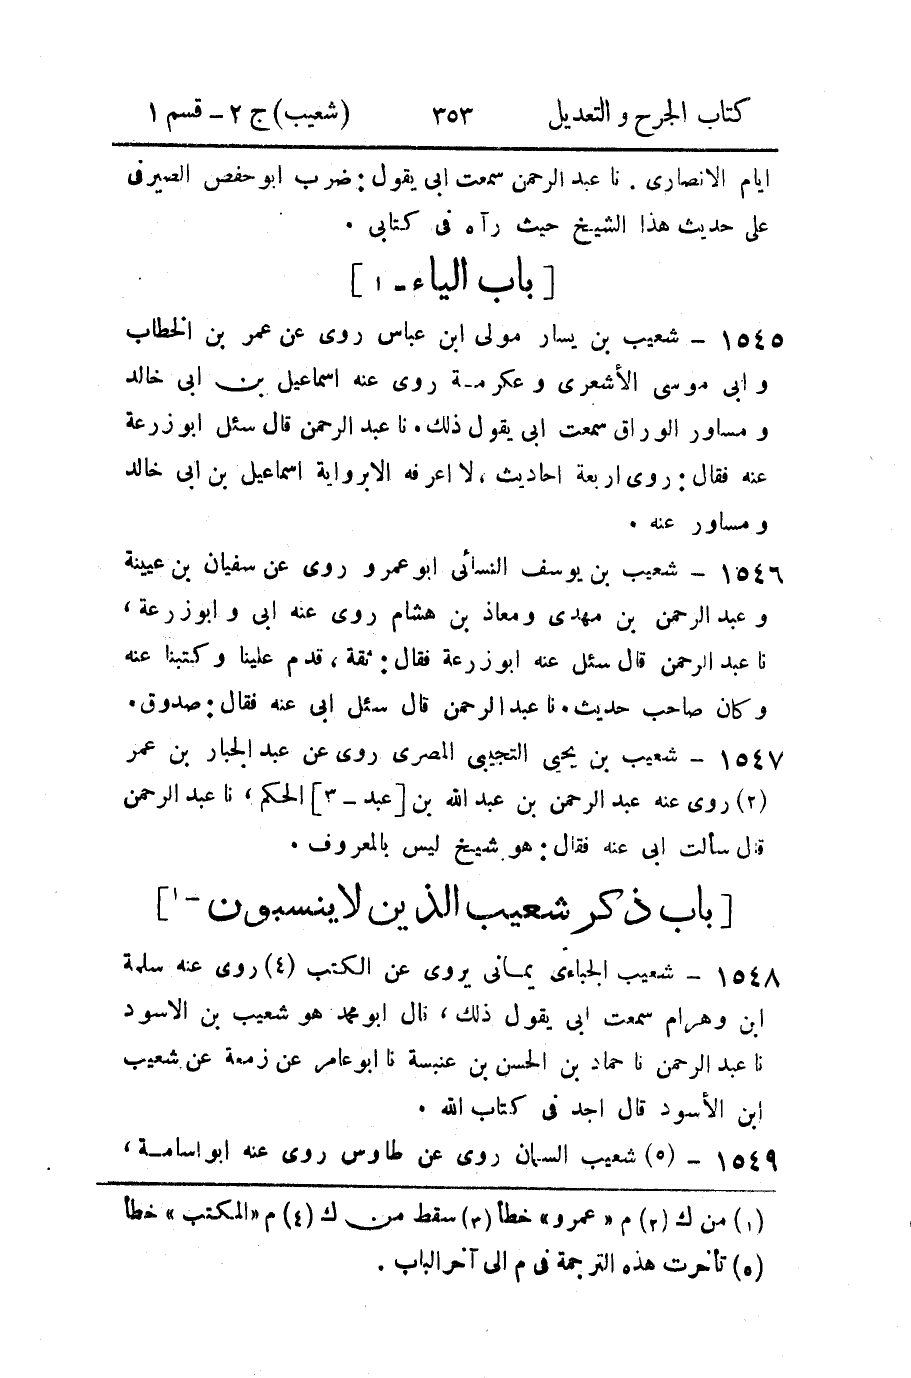 كتاب الجرح و التعديل ٣٥٣ (شعيب) ج ٢ - قسم ١
ايام الانصارى . نا عبد الرحمن سمعت ابى يقول : ضرب ابو حفص الصيرفى
على حديث هذا الشيخ حيث رآه فى كتابى .
[ باب الياء - ١ ]
١٥٤٥ - شعيب بن يسار مولى ابن عباس روى عن عمر بن الخطاب
و ابى موسى الأشعرى و عكرمة روى عنه اسماعيل بن ابى خالد
و مساور الوراق سمعت ابى يقول ذلك . نا عبد الرحمن قال سئل ابو زرعة
عنه فقال : روى اربعة احاديث ، لا اعرفه الا برواية اسماعيل بن ابى خالد
و مساور عنه .
١٥٤٦ - شعيب بن يوسف النسائى ابو عمرو روى عن سفيان بن عيينة
و عبد الرحمن بن مهدى ومعاذ بن هشام روى عنه ابى و ابو زرعة ،
نا عبد الرحمن قال سئل عنه ابو زرعة فقال : ثقة ، قدم علينا و كتبنا عنه
و كان صاحب حديث . نا عبد الرحمن قال سئل ابى عنه فقال : صدوق .
١٥٤٧ - شعيب بن يحيى التجيبى المصرى روى عن عبد الجبار بن عمر
(٢) روى عنه عبد الرحمن بن عبد الله بن [عبد - ٣] الحكم ، نا عبد الرحمن
قال سألت ابى عنه فقال : هو شيخ ليس بالمعروف .
[ باب ذكر شعيب الذين لا ينسبون - ١ ]
١٥٤٨ - شعيب الجباءى يمانى يروى عن الكتب (٤) روى عنه سلمة
ابن وهرام سمعت ابى يقول ذلك ، قال ابو محمد هو شعيب بن الاسود
نا عبد الرحمن نا حماد بن الحسن بن عنبسة نا ابو عامر عن زمعة عن شعيب
ابن الأسود قال اجد فى كتاب الله .
١٥٤٩ - (٥) شعيب السمان روى عن طاوس روى عنه ابو اسامة ،
(١) من ك (٢) م « عمرو » خطأ (٣) سقط من ك (٤) م «المكتب » خطأ
(٥) تأخرت هذه الترجمة فى م الى آخر الباب .